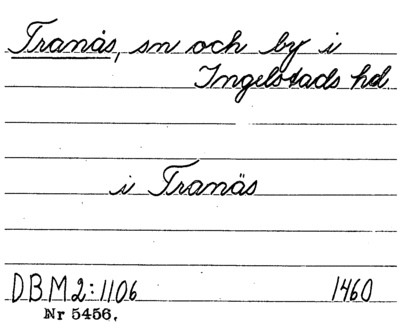 Tranås, sn och by i
Ingelstads hd.
i Tranäs
DBM 2:1106 1460
Nr 5456.